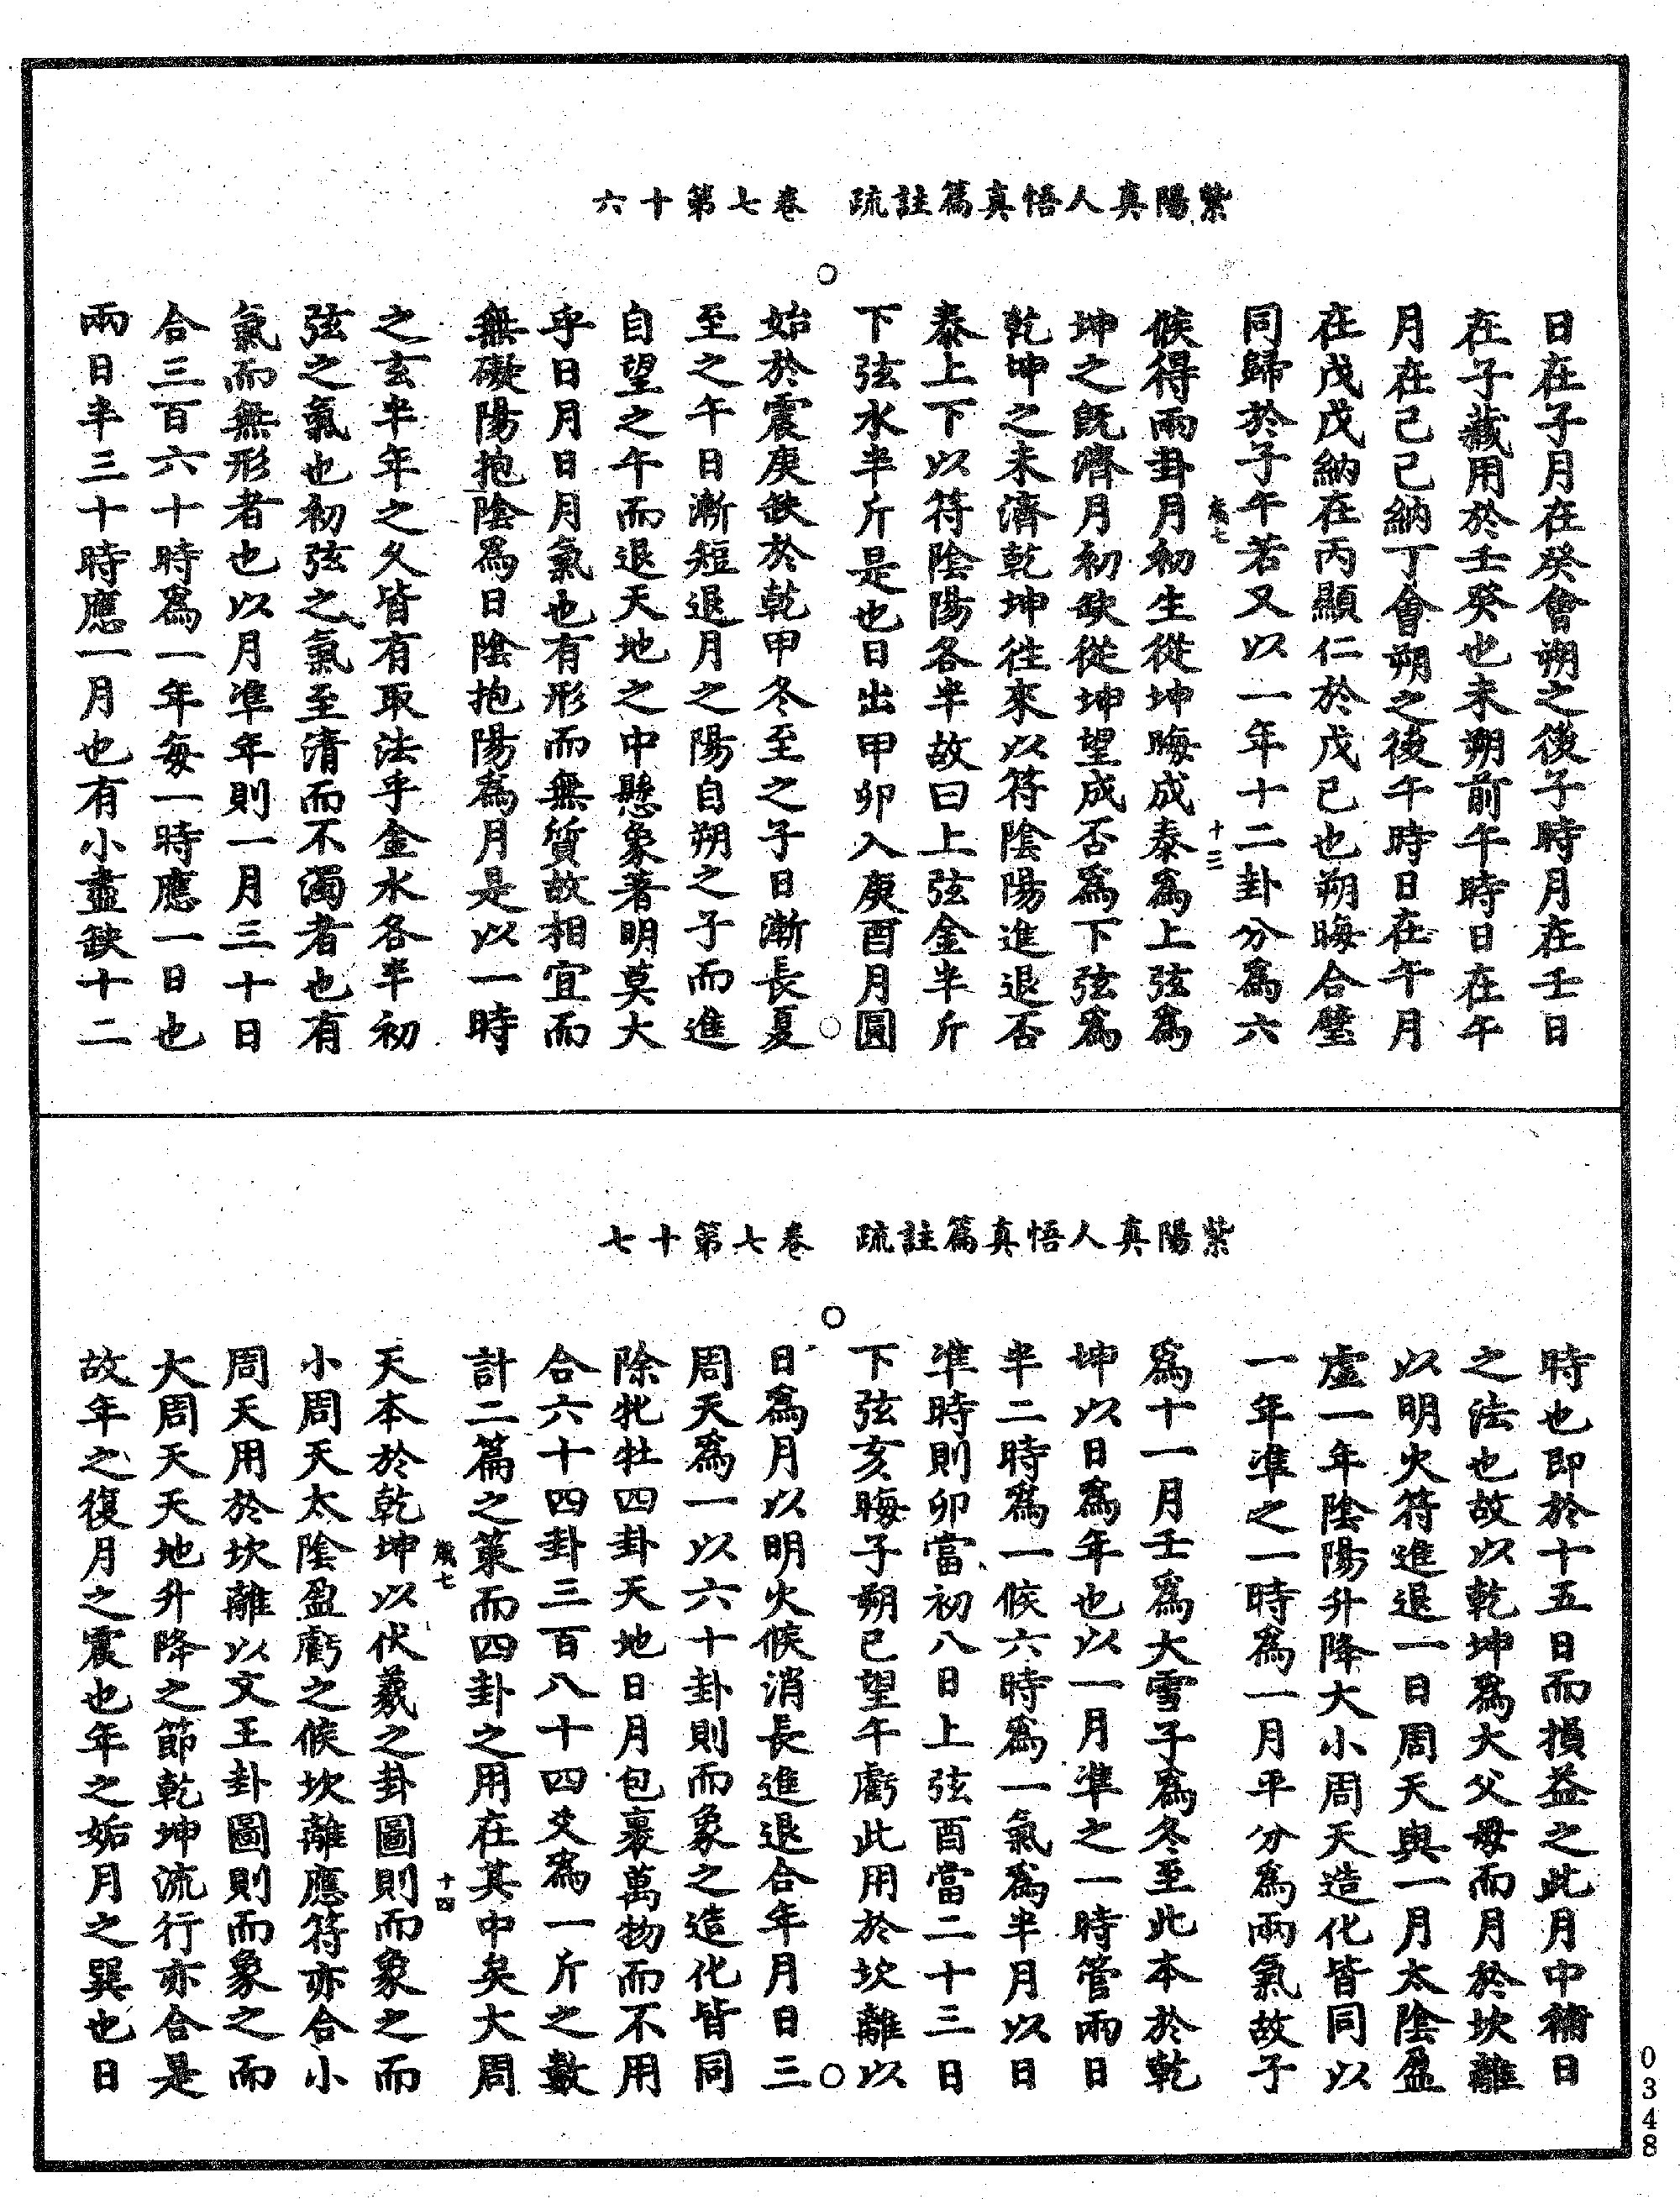 紫陽真人悟真篇註疏　卷七第十六
日在子月在癸會朔之後子時月在壬日
在子藏用於壬癸也未朔前午時日在午
月在己己納丁會朔之後午時日在午月
在戊戊納在丙顯仁於戊己也朔晦合璧
同歸於子午若又以一年十二卦分為六
十三
候得兩卦月初生從坤晦成泰為上弦為
坤之既濟月初缺從坤望成否為下弦為
乾坤之未濟乾坤往來以符陰陽進退否
泰上下以符陰陽各半故曰上弦金半斤
下弦水半斤是也日出甲卯入庚酉月圓
始於震庚缺於乾甲冬至之子日漸長夏
至之午日漸短退月之陽自朔之子而進
自望之午而退天地之中懸象著明莫大
乎日月日月氣也有形而無質故相宜而
無礙陽抱陰為日陰抱陽為月是以一時
之玄半年之久皆有取法乎金水各半初
弦之氣也初弦之氣至清而不濁者也有
氣而無形者也以月準年則一月三十日
合三百六十時為一年每一時應一日也
兩日半三十時應一月也有小盡缺十二
紫陽真人悟真篇註疏　卷七第十七
時也即於十五日而損益之此月中補日
之法也故以乾坤為大父母而月於坎離
以明火符進退一日周天與一月太陰盈
虛一年陰陽升降大小周天造化皆同以
一年準之一時為一月平分為兩氣故子
為十一月壬為大雪子為冬至此本於乾
坤以日為年也以一月準之一時管兩日
半二時為一候六時為一氣為半月以日
準時則卯當初八日上弦酉當二十三日
下弦亥晦子朔巳望午虧此用於坎離以
日為月以明火候消長進退合年月日三
周天為一以六十卦則而象之造化皆同
除牝牡四卦天地日月包裹萬物而不用
合六十四卦三百八十四爻為一斤之數
計二篇之策而四卦之用在其中矣大周
七
十四
天本於乾坤以伏羲之卦圖則而象之而
小周天太陰盈虧之候坎離應符亦合小
周天用於坎離以文王卦圖則而象之而
大周天天地升降之節乾坤流行亦合是
故年之復月之震也年之姤月之巽也日
0348